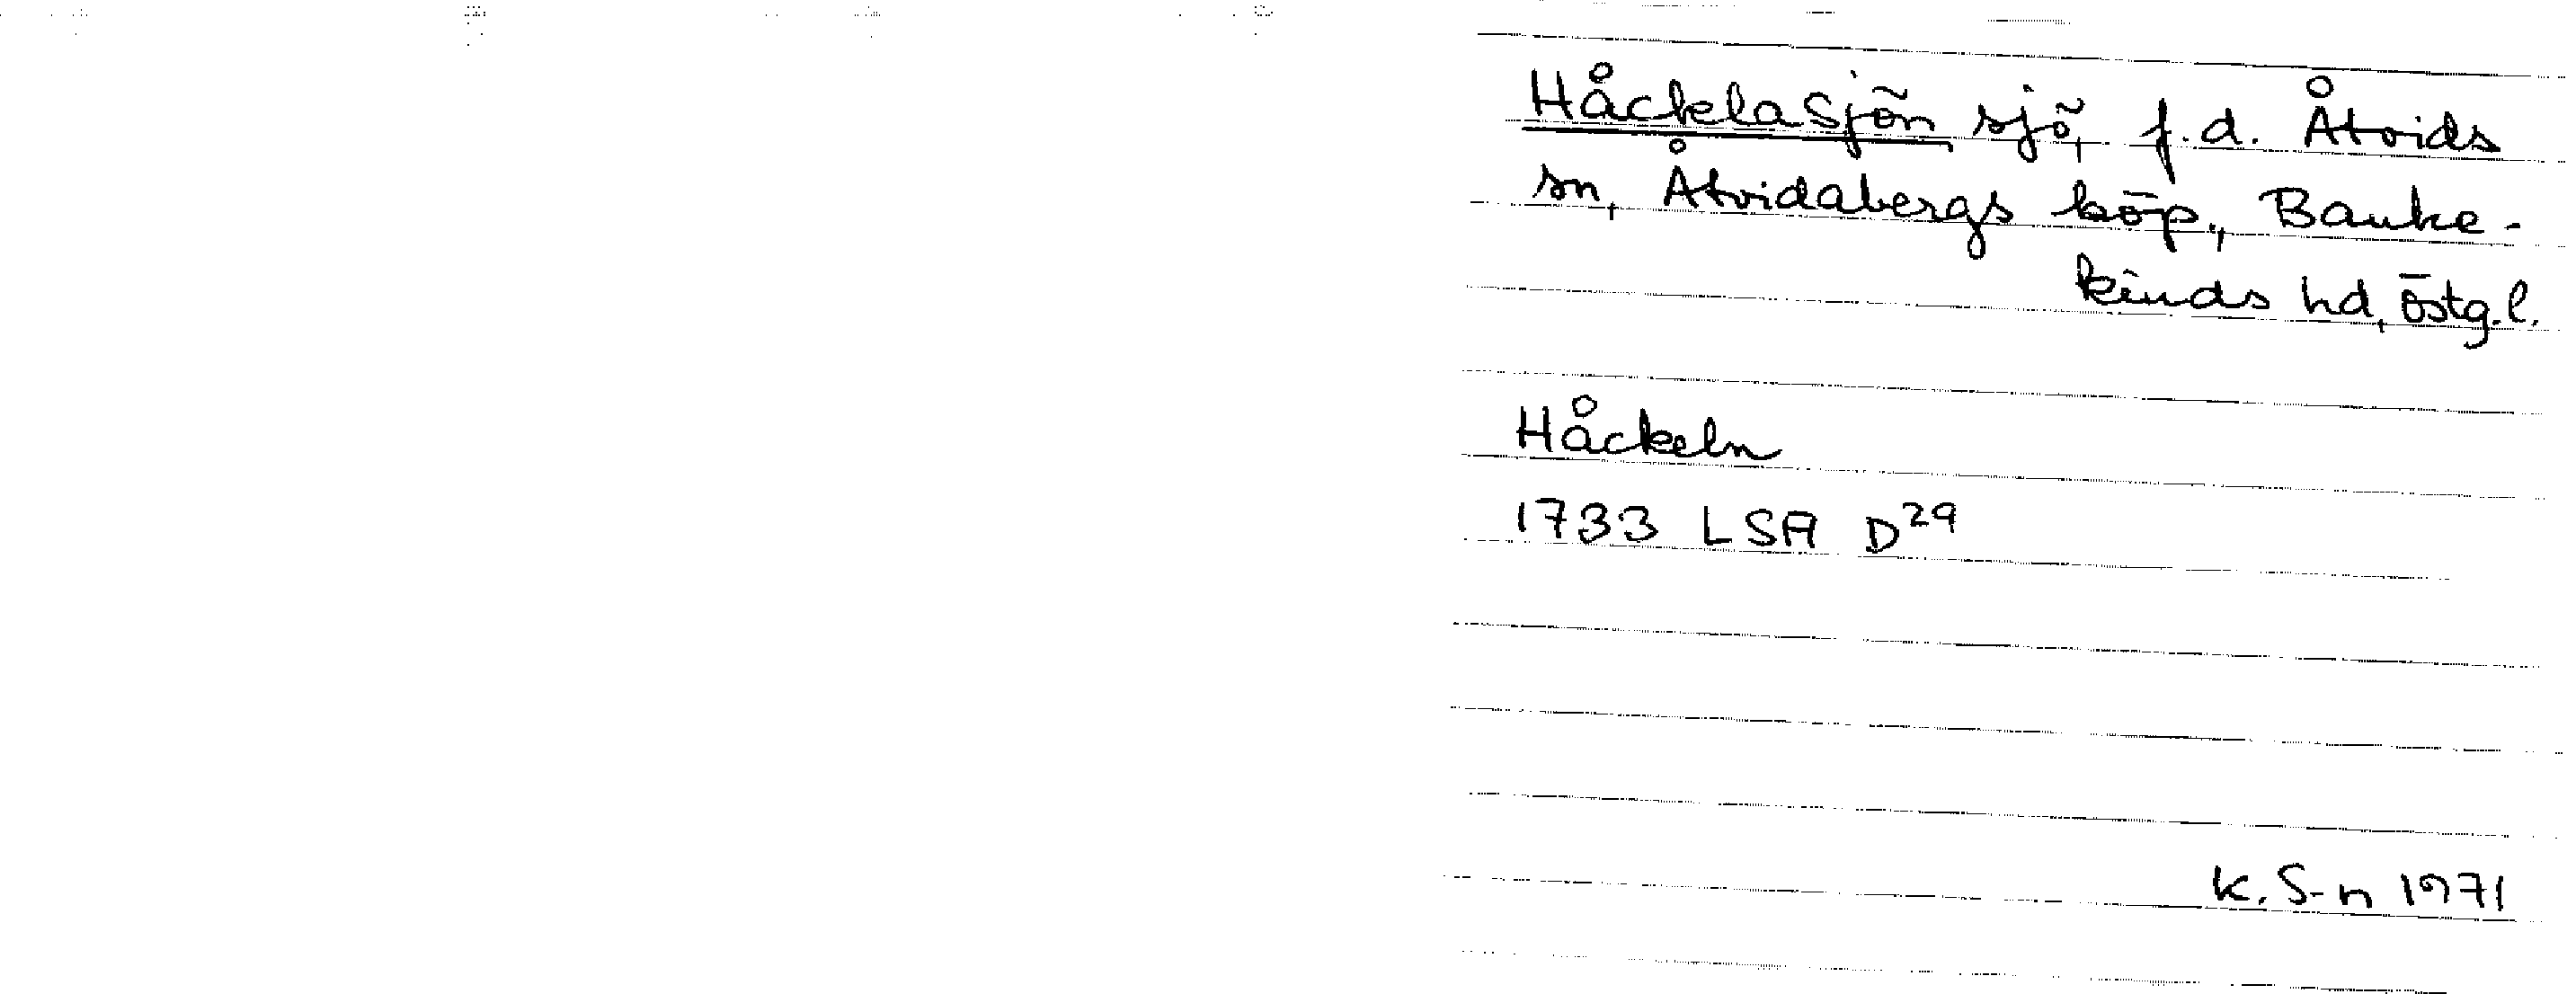 HåcklaSjön sjö, f.d. Åtvids
sn, Åtvidabergs köp., Banke-
kinds hd, Östg.l.
Håckeln
1733 LSA D29
K. S-n 1971